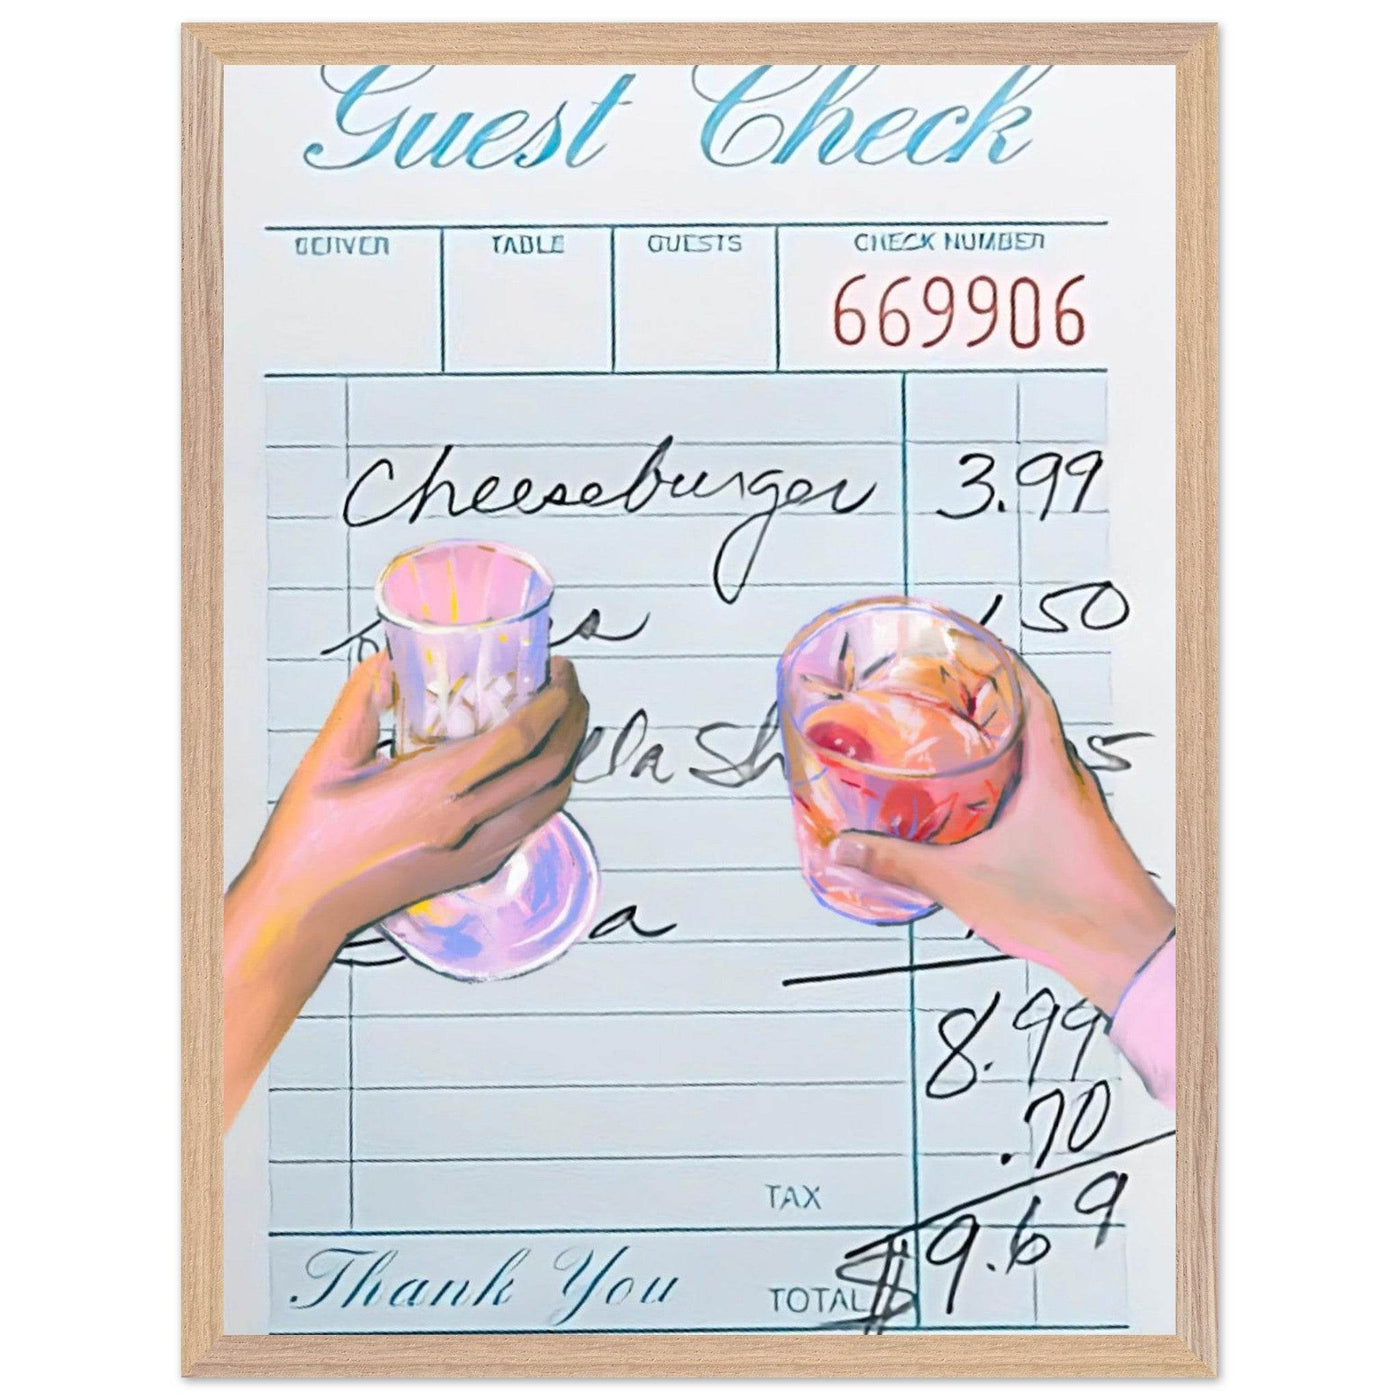 Guest Check
TABLE GUESTS CHECK NUMBER
669906
Cheeseburger 3.99
.50
Sh 5
a
8.99
.70
TAX
$9.69
Thank You TOTAL